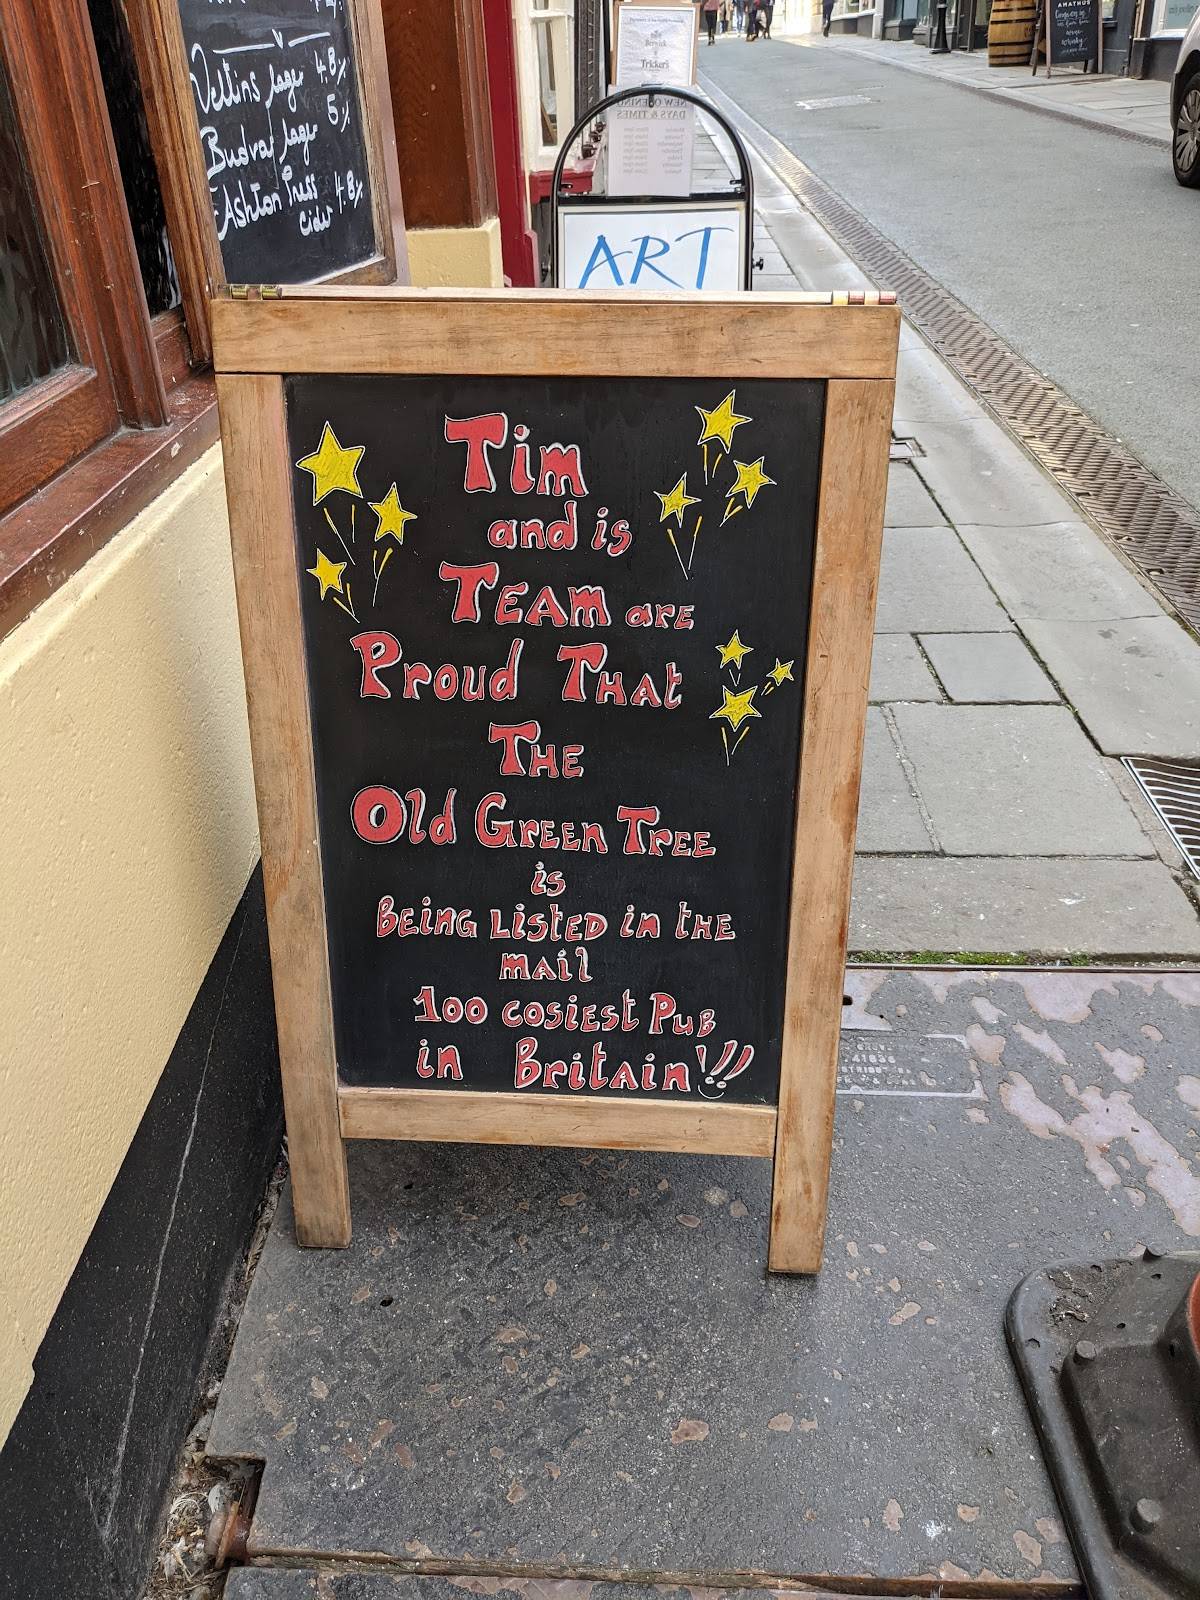 Veltins lager 4.8%
Budvar lager 5%
Ashton Press 4.8%
Cider
Tricker's
NEW OPENING
DAYS & TIMES
ART
AMATHUS
Tim
and is
TEAM are
Proud THAt
THE
Old GREEn TREE
is
BEiNG LISTED in tHE
mAil
100 cosiEst PuB
in BritAin!!!
41836